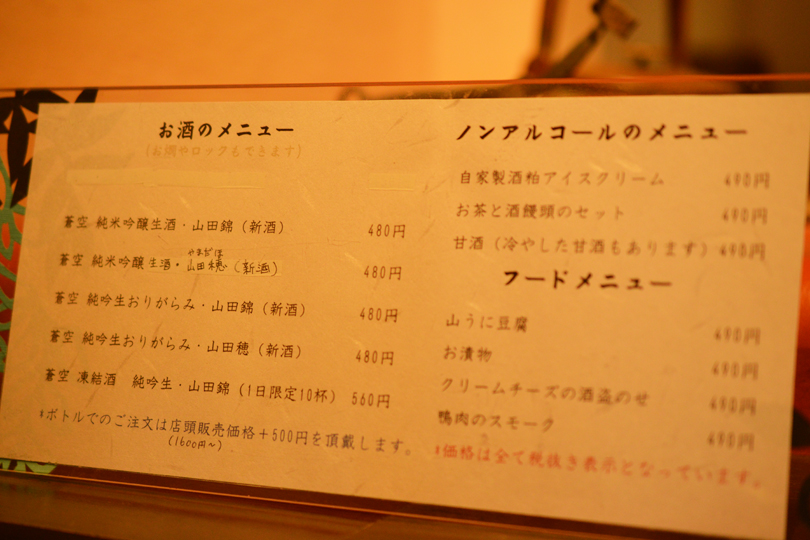 お酒のメニュー
(お燗やロックもできます)
蒼空 純米吟醸生酒・山田錦(新酒) 480円
やまだほ
蒼空 純米吟醸生酒・山田穂(新酒) 480円
蒼空 純吟生おりがらみ・山田錦(新酒) 480円
蒼空 純吟生おりがらみ・山田穂(新酒) 480円
蒼空 凍結酒 純吟生・山田錦(1日限定10杯) 560円
*ボトルでのご注文は店頭販売価格+500円を頂戴します。
(1600円~)
ノンアルコールのメニュー
自家製酒粕アイスクリーム 490円
お茶と酒饅頭のセット 490円
甘酒(冷やした甘酒もあります) 490円
フードメニュー
山うに豆腐 490円
お漬物 490円
クリームチーズの酒盗のせ 490円
鴨肉のスモーク 490円
*価格は全て税抜き表示となっています。